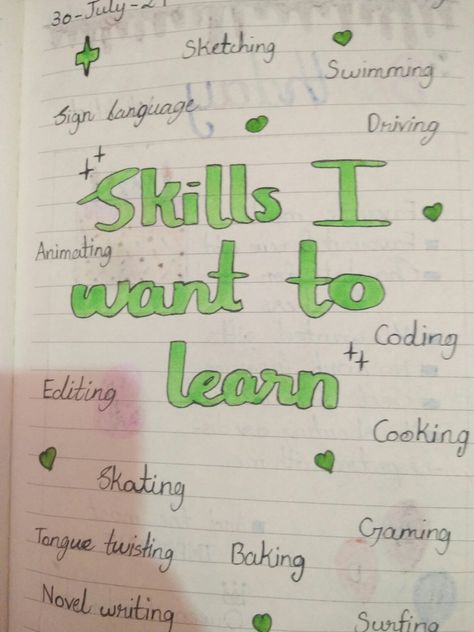 30-July-21
Sketching
Swimming
Sign language
Driving
Skills I
Animating
want to
Coding
learn
Editing
Cooking
Skating
Gaming
Tongue twisting
Baking
Novel writing
Surfing